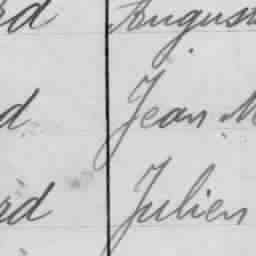 rd August
d Jean M
rd Julien